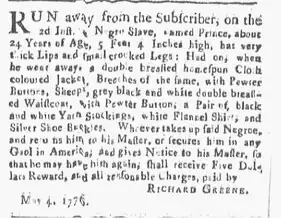 RUN away from the Subscriber, on the
2d Inst. a Negro Slave, named Prince, about
24 Years of Age, 5 Feet 4 Inches high, has very
thick Lips and small crooked Legs: Had on, when
he went away, a double breasted homespun Cloth
coloured Jacket, Breeches of the same, with Pewter
Buttons, grey black and white double breast-
ed Waistcoat, with Pewter Buttons, a Pair of, black
and white Yarn Stockings, white Flannel Shirt, and
Silver Shoe Buckles. Whoever takes up said Negroe,
and returns him to his Master, or secures him in any
Gaol in America; and gives Notice to his Master, so
that he may have him again, shall receive Five Dol-
lars Reward, and all reasonable Charges, paid by
RICHARD GREENE.
May 4, 1776.